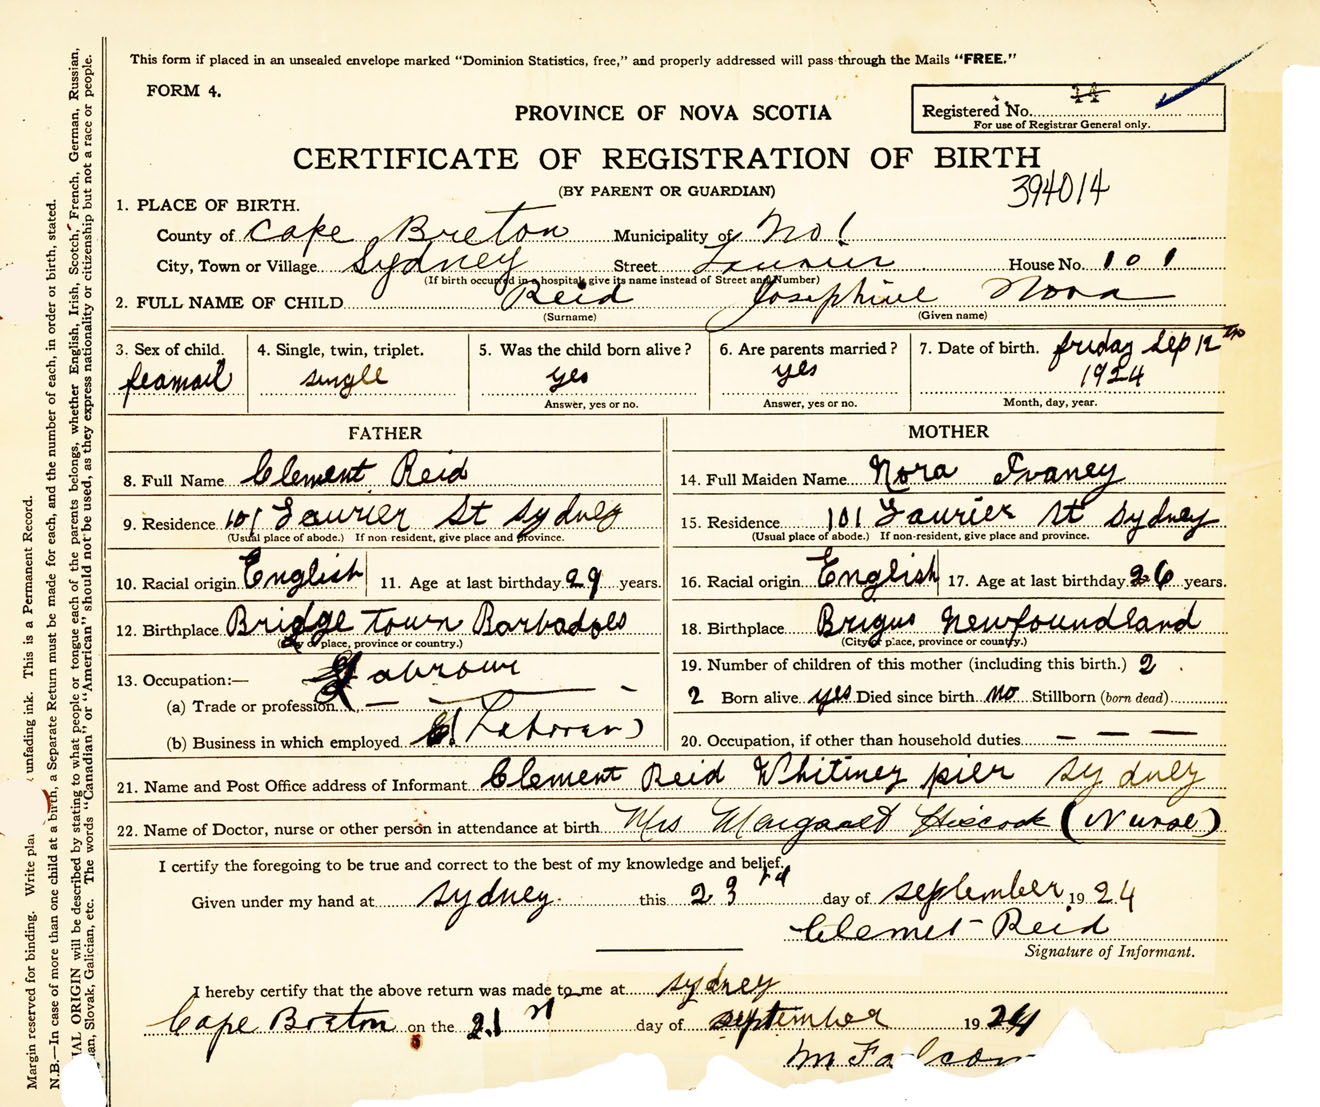 This form if placed in an unsealed envelope marked "Dominion Statistics, free," and properly addressed will pass through the Mails "FREE."
FORM 4.
Registered No. 14
For use of Registrar General only.
PROVINCE OF NOVA SCOTIA
CERTIFICATE OF REGISTRATION OF BIRTH
(BY PARENT OR GUARDIAN)
394014
1. PLACE OF BIRTH.
County of Cape Breton Municipality of No 1
City, Town or Village Sydney Street Laurier House No. 101
(If birth occurred in a hospital, give its name instead of Street and Number)
2. FULL NAME OF CHILD Reid Josephine Nora
(Surname) (Given name)
3. Sex of child. feamail
4. Single, twin, triplet. single
5. Was the child born alive? yes
Answer, yes or no.
6. Are parents married? yes
Answer, yes or no.
7. Date of birth. friday Sep 12th 1924
Month, day, year.
FATHER
8. Full Name Clement Reid
9. Residence 101 Laurier St Sydney
(Usual place of abode.) If non-resident, give place and province.
10. Racial origin English 11. Age at last birthday 29 years.
12. Birthplace Bridge town Barbados
(City or place, province or country.)
13. Occupation:— Labrour
(a) Trade or profession
(b) Business in which employed
MOTHER
14. Full Maiden Name Nora
15. Residence 101 Laurier St Sydney
(Usual place of abode.) If non-resident, give place and province.
16. Racial origin English 17. Age at last birthday 26 years.
18. Birthplace Brigus Newfoundland
(City or place, province or country.)
19. Number of children of this mother (including this birth.) 2
2 Born alive yes Died since birth no Stillborn (born dead)
20. Occupation, if other than household duties — — —
21. Name and Post Office address of Informant Clement Reid Whitiney pier Sydney
22. Name of Doctor, nurse or other person in attendance at birth Mrs Margaret Hiscock (Nurse)
I certify the foregoing to be true and correct to the best of my knowledge and belief.
Given under my hand at Sydney this 23rd day of September 1924
Clemet Reid
Signature of Informant.
I hereby certify that the above return was made to me at Sydney
Cape Breton on the 21st day of September 1924
Margin reserved for binding. Write unfading ink. This is a Permanent Record.
N.B.—In case of more than one child at a birth, a Separate Return must be made for each, and the number of each, in order of birth, stated.
ORIGIN will be described by stating to what people or tongue each of the parents belongs, whether English, Irish, Scotch, French, German, Russian,
Slovak, Galician, etc. The words "Canadian" or "American" should not be used, as they express nationality or citizenship but not a race or people.